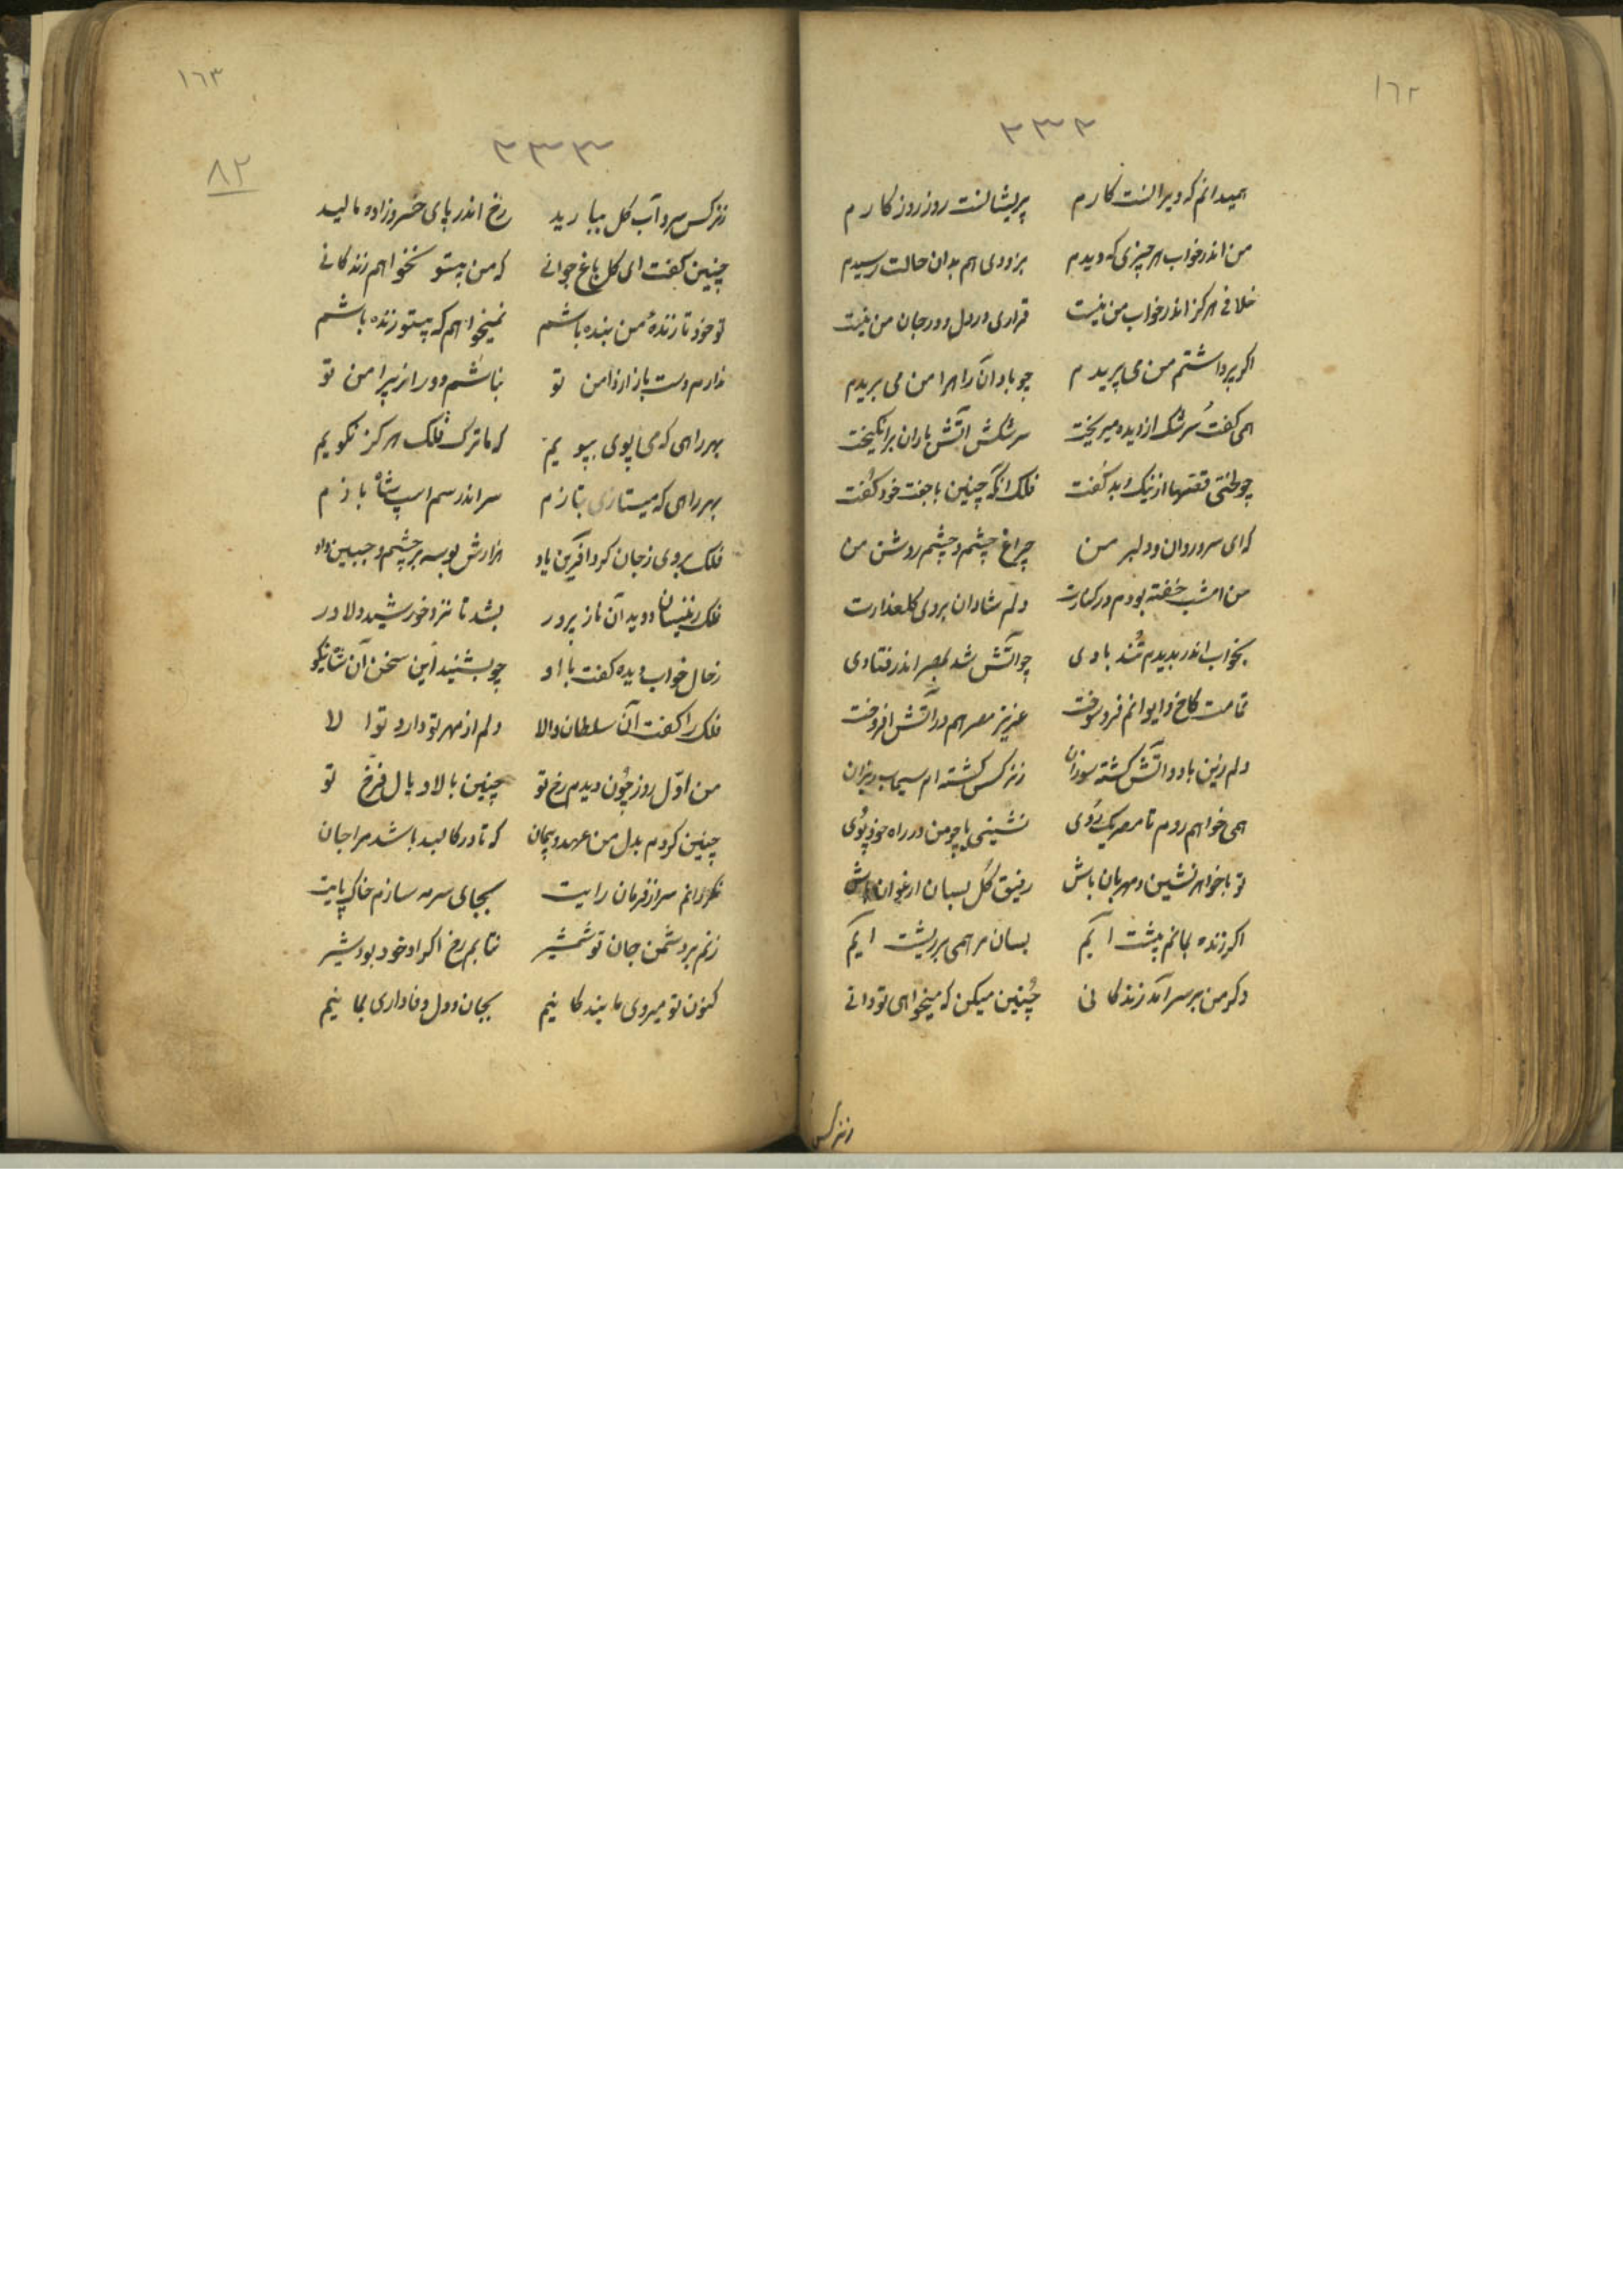 ١٦٢
٢٣٢
همیدانم که ویرانست کارم پریشانست روز روزکارم
من اندر خواب هر چیزی که دیدم بزودی هم بدان حالت رسیدم
خلافی هرکز اندر خواب من نیست قراری در دل و در جان من نیست
اکر پر داشتم من می پریدم چو باد آن راه را من می بریدم
همی کفت سرشک از دیده میریخت سرشکش آتش باران برانکیخت
چو طنتی قصتها از نیک و بد کفت فلک آنکه چنین با جفت خود کفت
که ای سرو روان و دلبر من چراغ چشم و چشم روشن من
من امشب خفته بودم در کنارت دلم شادان بروی کلعذارت
بخواب اندر بدیدم تند بادی چو آتش شد بمصر اندر فتادی
تمامت کاخ و ایوانم فرو سوخت عزیز مصر هم در آتش افروخت
دلم زین باد و آتش کشته سوزان ز نرکس کشته ام سیماب ریزان
همی خواهم روم تا مصر یک روی نشینی با چو من در راه خود پوی
تو با خواهر نشین و مهربان باش رفیق کل بسان ارغوان باش
اکر زنده بمانم پیشت آیم بسان مرهمی بر ریشت آیم
دکر من بر سر آمد زندکانی چنین میکن که میخواهی تو دانی
ز نرکس
١٦٣
٢٣٣
٨٢
ز نرکس سرو آب کل ببارید رخ اندر پای خسروزاده مالید
چنین کفت ای کل باغ جوانی که من بیتو نخواهم زندکانی
تو خود تا زنده من بنده باشم نمیخواهم که بیتو زنده باشم
ندارم دست باز از دامن تو نباشم دور از پیرامن تو
بهر راهی که می پوی بپویم که ما ترک فلک هرکز نکویم
بهر راهی که میتازی بتازم سر اندر سم اسپ شاه بازم
فلک بروی ز جان کرد آفرین یاد هزارش بوسه بر چشم و جبین داد
فلک ز ننسان دوید آن ناز پرور بشد تا نزد خورشید دلاور
ز حال خواب دیده کفت با او چو بشنید این سخن آن شاه نیکو
فلک را کفت آن سلطان والا دلم از مهر تو دارد تولا
من اول روز چون دیدم رخ تو چنین بالا و بال فرخ تو
چنین کردم بدل من عهد و پیمان که تا در کالبد باشد مرا جان
نکردانم سر از فرمان رایت بجای سرمه سازم خاک پایت
زنم بر دشمن جان تو شمشیر نتابم رخ اکر او خود بود شیر
کنون تو میروی ما بندکانیم بجان و دل وفاداری نماییم